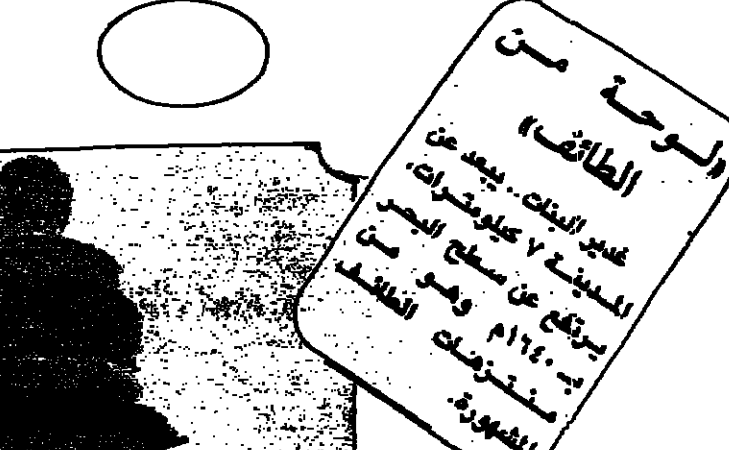 «لوحة من
الطائف»
غدير البنات.. يبعد عن
المدينة ٧ كيلومترات.
يرتفع عن سطح البحر
بـ ١٦٤٠م وهو من
منتزهات الطائف
المشهورة.